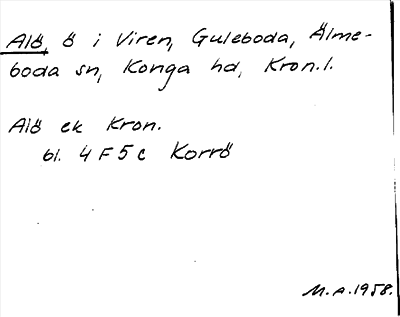 Alö, ö i Viren, Guleboda, Älme-
boda sn, Konga hd, Kron.l.
Alö ek Kron.
bl. 4 F 5 c Korrö
M.A.1958.